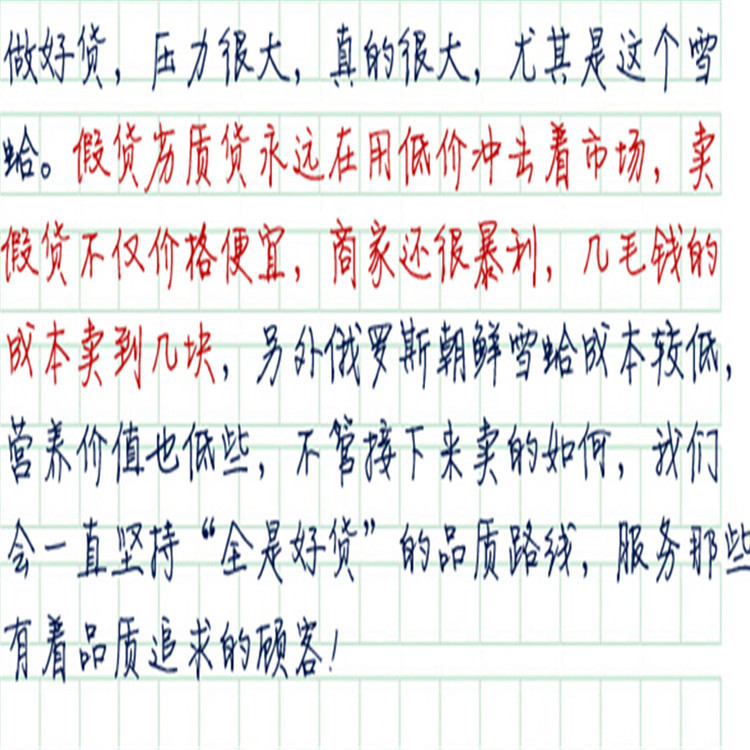 做好货，压力很大，真的很大，尤其是这个雪
蛤。假货劣质货永远在用低价冲击着市场，卖
假货不仅价格便宜，商家还很暴利，几毛钱的
成本卖到几块，另外俄罗斯朝鲜雪蛤成本较低，
营养价值也低些，不管接下来卖的如何，我们
会一直坚持“全是好货”的品质路线，服务那些
有着品质追求的顾客！